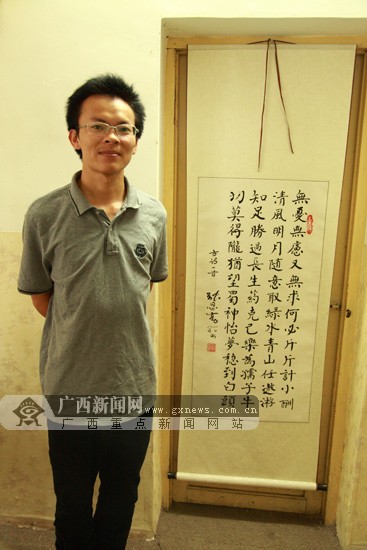 無憂無慮又無求何必斤斤計小酬
清風明月隨意取綠水青山任遨游
知足勝過長生葯克己樂為孺子牛
切莫得隴猶望蜀神怡夢穩到白頭
古诗一首
广西新闻网
www.gxnews.com.cn
广西重点新闻网站